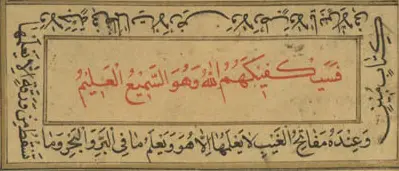 فسيكفيكهم الله وهو السميع العليم
وعنده مفاتح الغيب لا يعلمها الا هو ويعلم ما في البر والبحر وما
تسقط من ورقة الا يعلمها
كتاب مبين